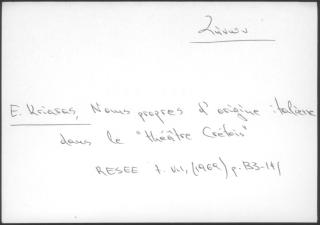 E. Kriaras, Noms propres d'origine italienne
dans le "théâtre Crétois"
RESEE t. VII, (1969) p.